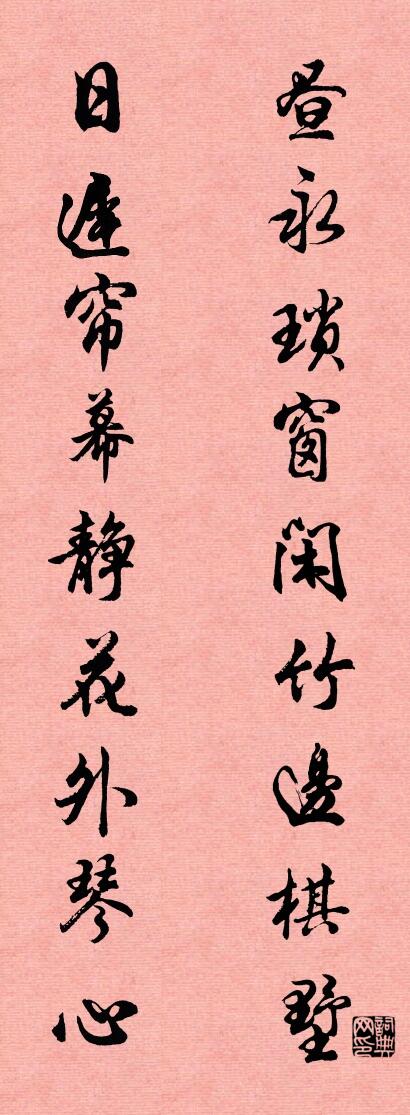 昼永琐窗闲竹邊棋墅
日遲帘幕静花外琴心
詞典网印